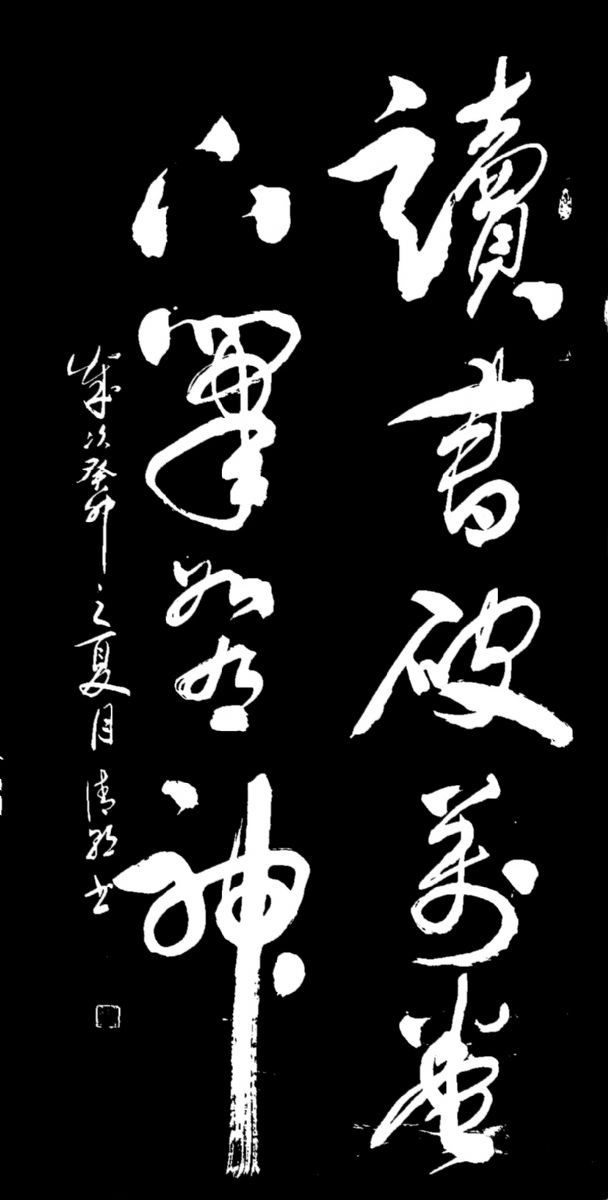 讀書破萬卷
下筆如有神
歲次癸卯之夏月清
書